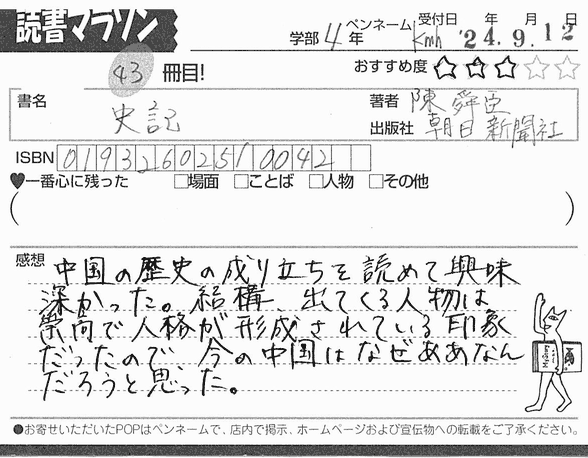 読書マラソン
学部 4 年 ペンネーム Kmh 受付日 '24. 年 9. 月 12 日
43 冊目!
おすすめ度 ☆☆☆☆☆
書名 史記
著者 陳舜臣
出版社 朝日新聞社
ISBN 0193260251 0042
♥一番心に残った □場面 □ことば □人物 □その他
( )
感想 中国の歴史の成り立ちを読めて興味
深かった。結構 出てくる人物は
崇高で人格が形成されている印象
だったので 今の中国はなぜああなん
だろうと思った。
●お寄せいただいたPOPはペンネームで、店内で掲示、ホームページおよび宣伝物への転載をご了承ください。